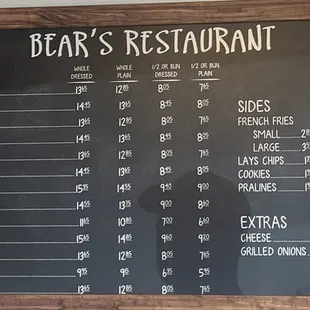 BEAR'S RESTAURANT
WHOLE DRESSED WHOLE PLAIN 1/2 OR BUN DRESSED 1/2 OR BUN PLAIN
13.65 12.85 8.05 7.65
14.45 13.65 8.45 8.05
13.65 12.85 8.05 7.65
14.45 13.65 8.45 8.05
13.65 12.85 8.05 7.65
14.45 13.65 8.45 8.05
15.35 14.55 9.40 9.00
14.55 13.75 9.00 8.60
11.65 10.85 7.00 6.60
15.65 14.85 9.60 9.20
13.65 12.85 8.05 7.65
9.95 9.15 6.35 5.95
13.65 12.85 8.05 7.65
SIDES
FRENCH FRIES
SMALL
LARGE
LAYS CHIPS
COOKIES
PRALINES
EXTRAS
CHEESE
GRILLED ONIONS